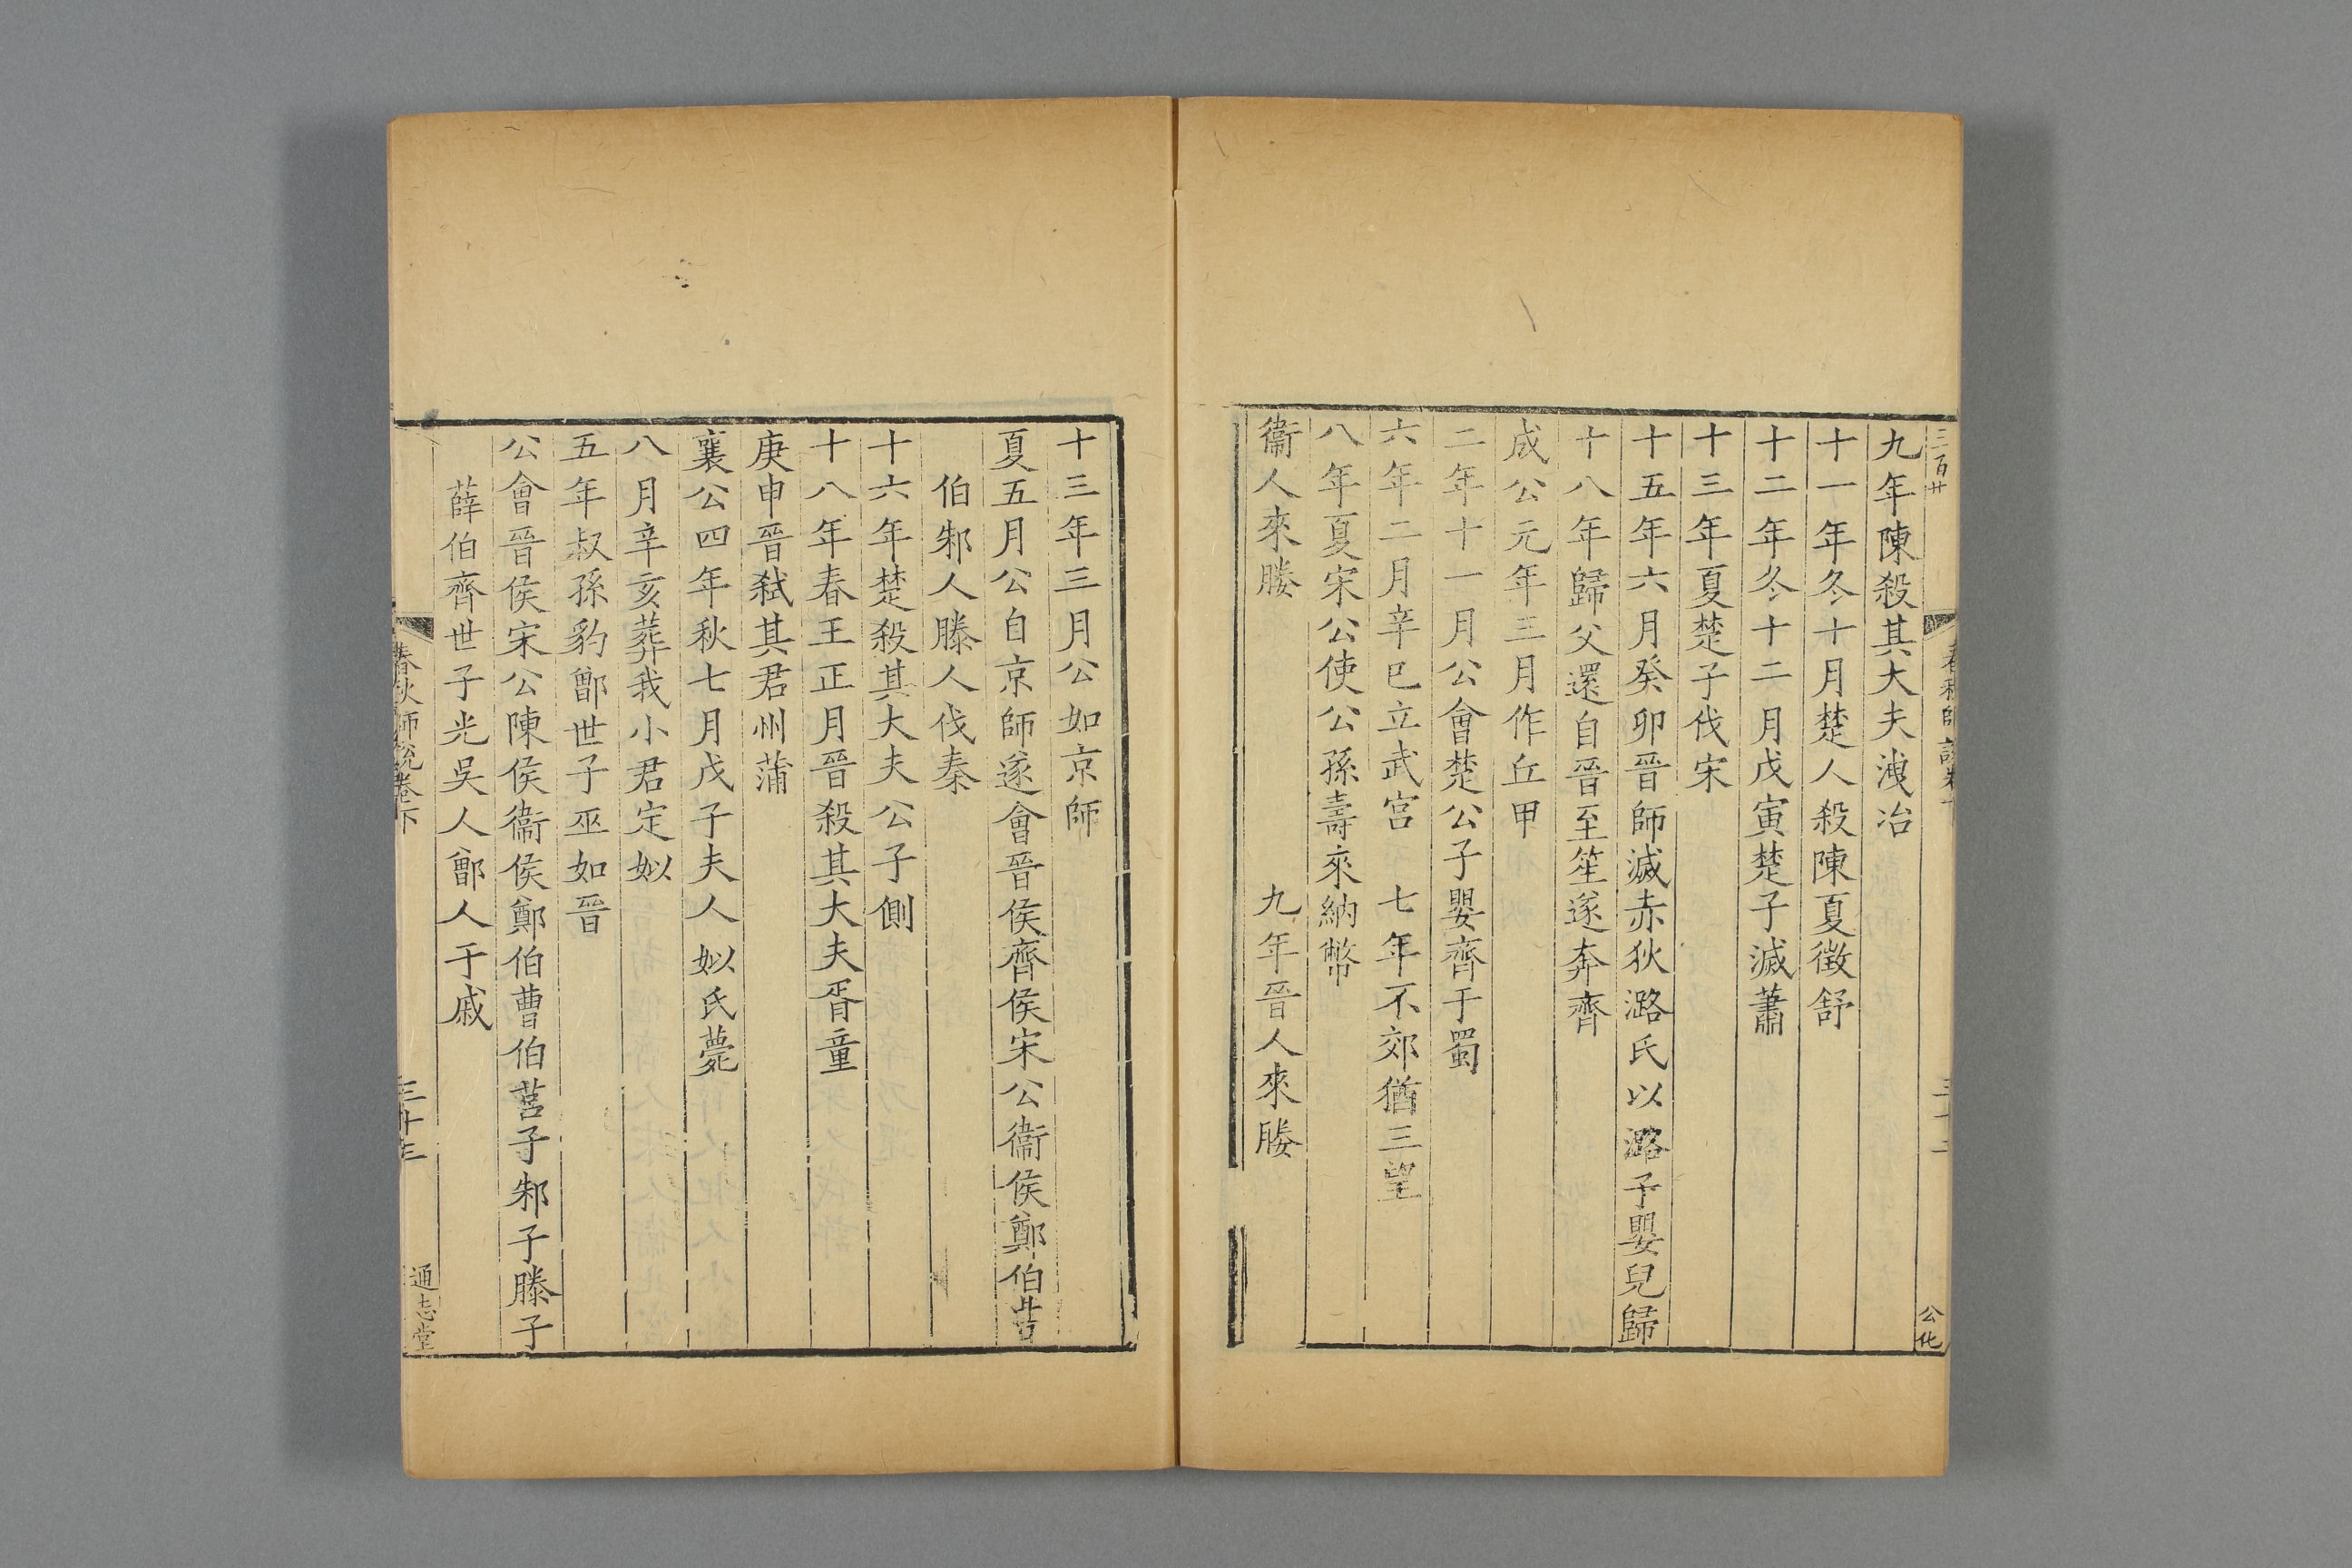 三百廿
春秋師說卷下
公化
九年陳殺其大夫洩冶
十一年冬十月楚人殺陳夏徵舒
十二年冬十二月戊寅楚子滅蕭
十三年夏楚子伐宋
十五年六月癸卯晉師滅赤狄潞氏以潞子嬰兒歸
十八年歸父還自晉至笙遂奔齊
成公元年三月作丘甲
二年十一月公會楚公子嬰齊于蜀
六年二月辛巳立武宮 七年不郊猶三望
八年夏宋公使公孫壽來納幣
衞人來媵 九年晉人來媵
十三年三月公如京師
夏五月公自京師遂會晉侯齊侯宋公衞侯鄭伯曹
伯邾人滕人伐秦
十六年楚殺其大夫公子側
十八年春王正月晉殺其大夫胥童
庚申晉弒其君州蒲
襄公四年秋七月戊子夫人姒氏薨
八月辛亥葬我小君定姒
五年叔孫豹鄫世子巫如晉
公會晉侯宋公陳侯衞侯鄭伯曹伯莒子邾子滕子
薛伯齊世子光吳人鄫人于戚
春秋師說卷下
三十三
通志堂